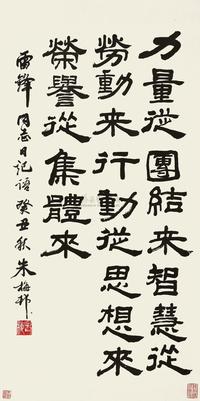 力量從團結来智慧從
勞動来行動從思想來
榮譽從集體來
雷鋒同志日记语 癸丑秋 朱梅邨